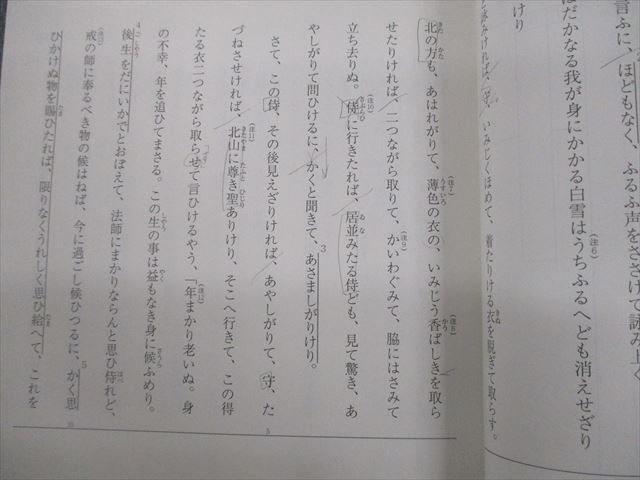 言ふに、ほどもなく、ふるふ声をささげて詠み上く
はだかなる我が身にかかる白雪はうちふるへども消えせざり
けり
と詠みければ、守、いみじくほめて、着たりける衣を脱ぎて取らす。
北の方も、あはれがりて、薄色の衣の、いみじう香ばしきを取ら
せたりければ、二つながら取りて、かいわぐみて、脇にはさみて
立ち去りぬ。侍に行きたれば、居並みたる侍ども、見て驚き、あ
やしがりて問ひけるに、かくと聞きて、あさましがりけり。
さて、この侍、その後見えざりければ、あやしがりて、守、た
づねさせければ、北山に尊き聖ありけり、そこへ行きて、この得
たる衣二つながら取らせて言ひけるやう、「年まかり老いぬ。身
の不幸、年を追ひてまさる。この生の事は益もなき身に候ふめり。
後生をだにいかでとおぼえて、法師にまかりならんと思ひ侍れど、
戒の師に奉るべき物の候はねば、今に過ごし候ひつるに、かく思
ひかけぬ物を賜ひたれば、限りなくうれしく思ひ給へて、これを